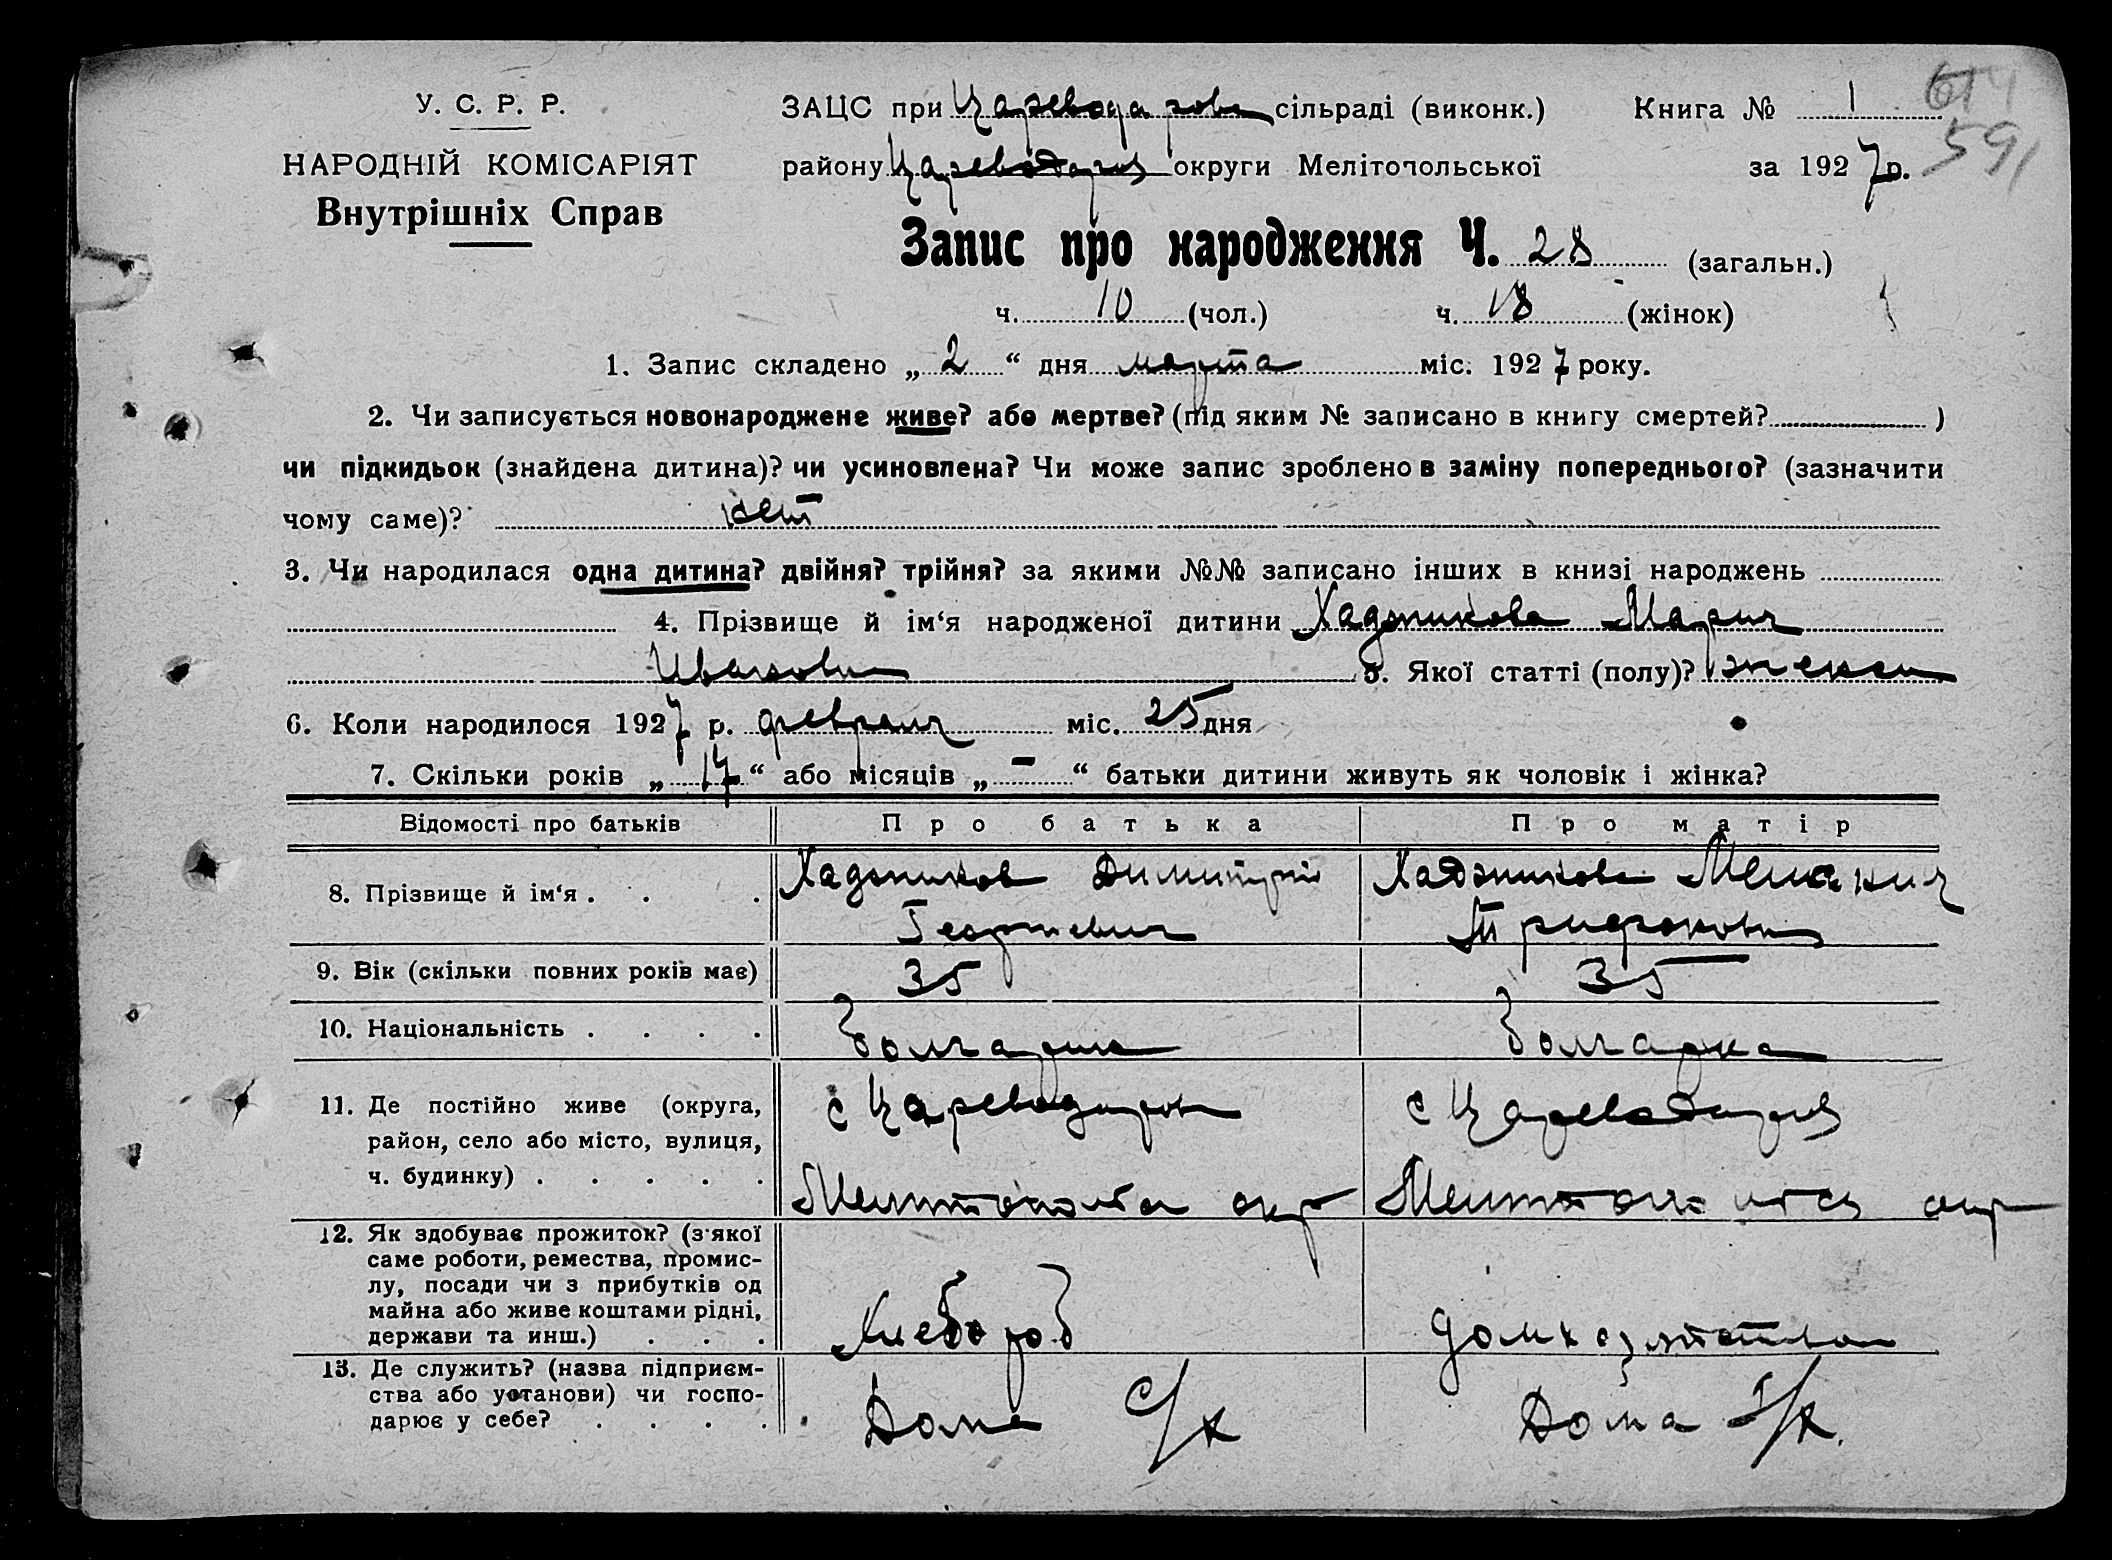 У. С. Р. Р.
НАРОДНІЙ КОМІСАРІЯТ
Внутрішніх Справ
ЗАЦС при Цареводаровс сільраді (виконк.) Книга № 1
району Цареводаров округи Мелітопольської за 1927 р.
614
591
Запис про народження Ч. 28 (загальн.)
ч. 10 (чол.) ч. 18 (жінок)
1. Запис складено „ 2 “ дня марта міс. 1927 року.
2. Чи записується новонароджене живе? або мертве? (під яким № записано в книгу смертей? )
чи підкидьок (знайдена дитина)? чи усиновлена? Чи може запис зроблено в заміну попереднього? (зазначити
чому саме)? нет
3. Чи народилася одна дитина? двійня? трійня? за якими №№ записано інших в книзі народжень
4. Прізвище й ім‘я народженої дитини Хаджикова Мария
Ивановн 5. Якої статті (полу)? женск
6. Коли народилося 1927 р. февраля міс. 25 дня
7. Скільки років „ 17 “ або місяців „ – “ батьки дитини живуть як чоловік і жінка?
Відомості про батьків Про батька Про матір
8. Прізвище й ім‘я . . . Хаджиков Димитрий Хаджикова Мелания
Георгиевич Трифоновн
9. Вік (скільки повних років має) 35 35
10. Національність . . . . Болгарин Болгарка
11. Де постійно живе (округа, район, село або місто, вулиця, ч. будинку) . . . . . с Цареводаров с Цареводаров
Мелитопольск окр Мелитопольск окр
12. Як здобуває прожиток? (з'якої
саме роботи, ремества, промис-
лу, посади чи з прибутків од
майна або живе коштами рідні,
держави та инш.) . . . Хлебороб домхозяйство
13. Де служить? (назва підприєм-
ства або установи) чи госпо-
дарює у себе? . . . . Дома с/х Дома с/х.